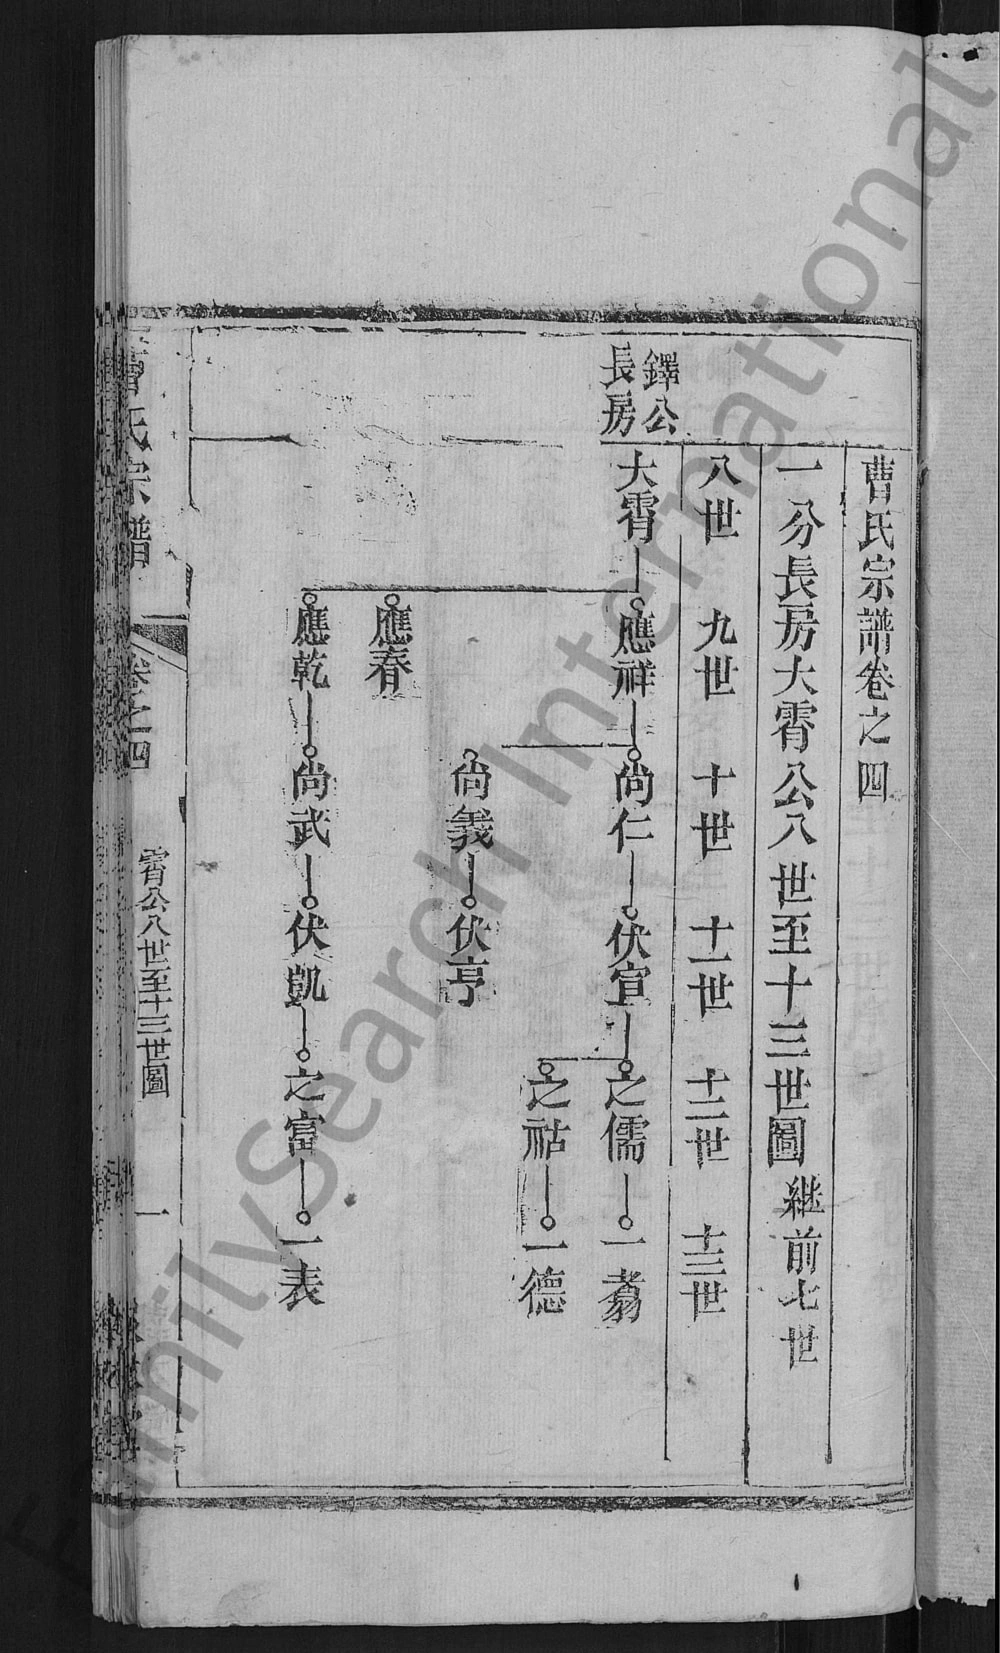 曹氏宗譜卷之四
一分長房大霄公八世至十三世圖 繼前七世
八世 九世 十世 十一世 十二世 十三世
鐸公
長房
大霄 應祥 尚仁 伏宣 之儒 一
之祜 一德
尚義 伏亨
應春
應乾 尚武 伏凱 之富 一表
曹氏宗譜 卷之四 霄公八世至十三世圖 一
FamilySearch International